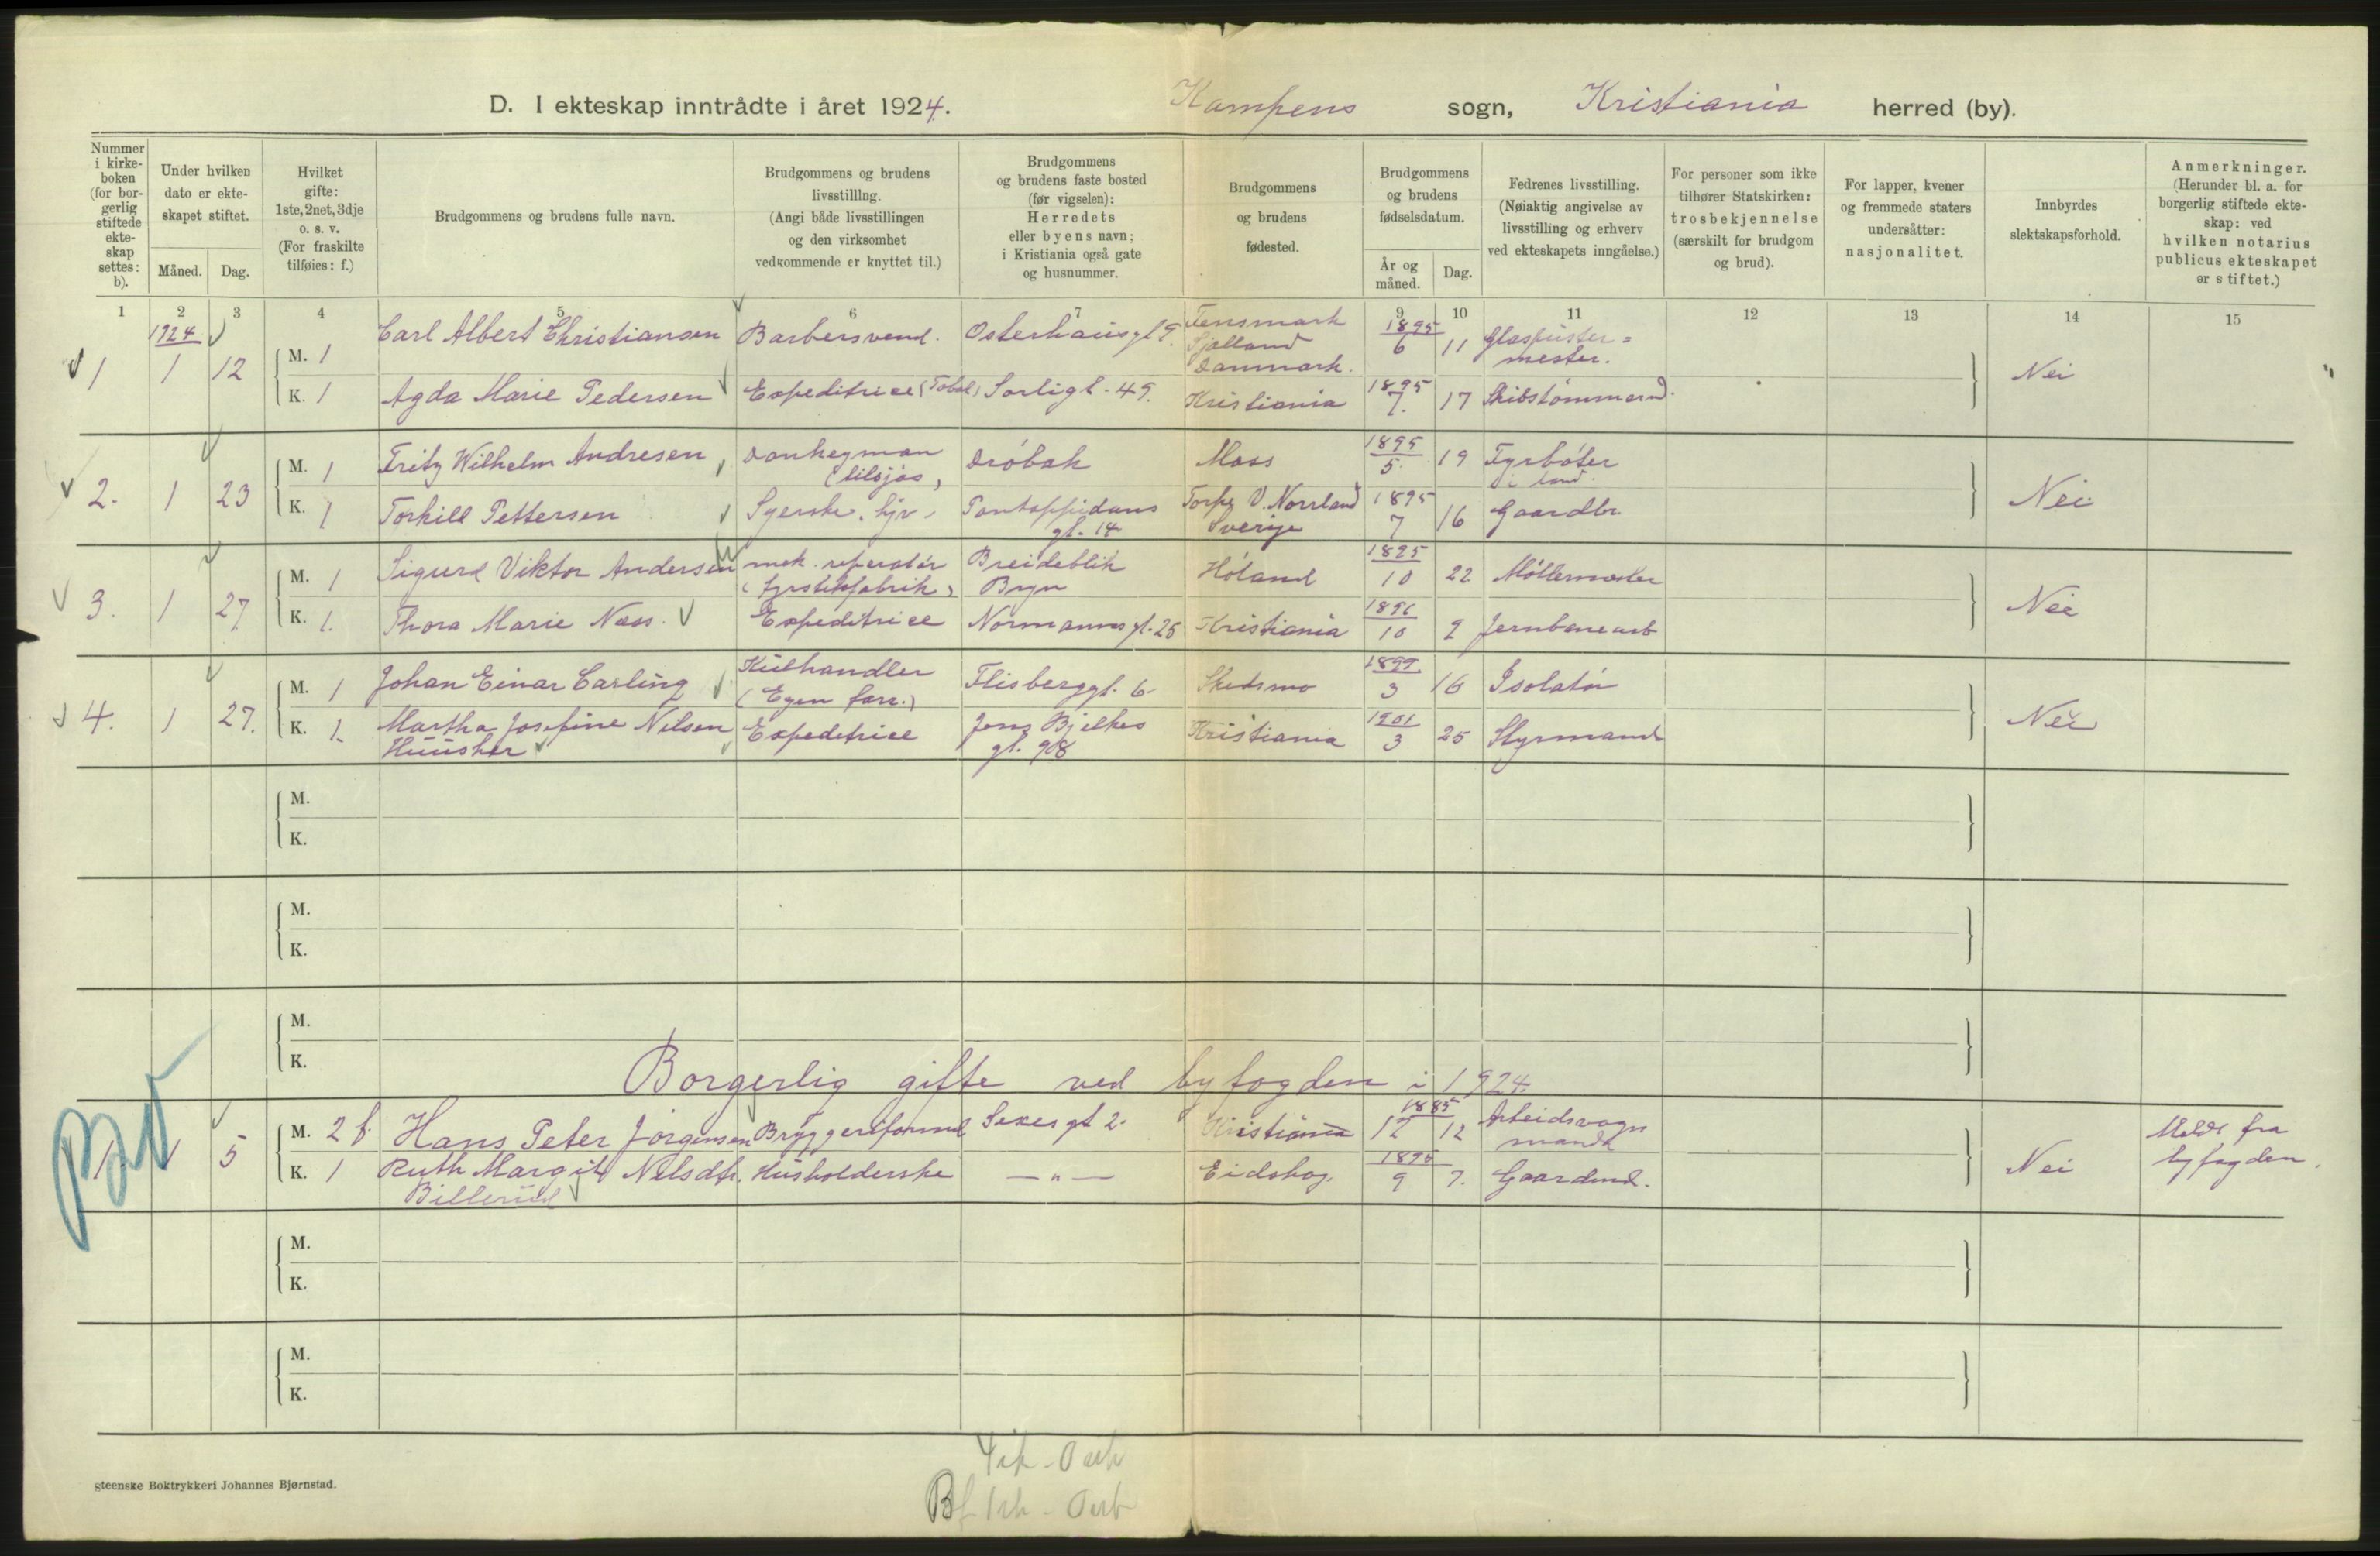 D. I ekteskap inntrådte i året 1924. Kampens sogn, Kristiania herred (by).
Nummer i kirke-boken (for bor-gerlig stiftede ekte-skap settes: b).
Under hvilken dato er ekte-skapet stiftet.
Måned. Dag.
Hvilket gifte: 1ste, 2net, 3dje o. s. v. (For fraskilte tilføies: f.)
Brudgommens og brudens fulle navn.
Brudgommens og brudens livsstillIng. (Angi både livsstillingen og den virksomhet vedkommende er knyttet til.)
Brudgommens og brudens faste bosted (før vigselen): Herredets eller byens navn; i Kristiania også gate og husnummer.
Brudgommens og brudens fødested.
Brudgommens og brudens fødselsdatum.
År og måned. Dag.
Fedrenes livsstilling. (Nøiaktig angivelse av livsstilling og erhverv ved ekteskapets inngåelse.)
For personer som ikke tilhører Statskirken: trosbekjennelse (særskilt for brudgom og brud).
For lapper, kvener og fremmede staters undersåtter: nasjonalitet.
Innbyrdes slektskapsforhold.
Anmerkninger. (Herunder bl. a. for borgerlig stiftede ekte-skap: ved hvilken notarius publicus ekteskapet er stiftet.)
1 2 3 4 5 6 7 9 10 11 12 13 14 15
1924
1 1 12 M. 1 Carl Albert Christiansen Barbersvend. Osterhausgt 9. Fensmark Sjælland Danmark. 1895 6 11 Glaspuster= mester.
K. 1 Agda Marie Pedersen Expeditrice (Tobak) Sorligt. 49. Kristiania 1895 7. 17 Skibstømmermd. Nei
2. 1 23 M. 1 Fritz Wilhelm Andresen Donkeyman (tilsjøs) Drøbak Moss 1895 5. 19 Fyrbøter i land.
K. 1 Torhill Pettersen Syerske. hjv. Pontoppidans gt. 14 Torp V. Norrland Sverige 1895 7 16 Gaardbr. Nei
3. 1 27 M. 1 Sigurd Viktor Andersen mek. reparatør (fyrstikfabrik) Breideblik Bryn Høland 1895 10 22 Møllermester
K. 1. Thora Marie Næss. Expeditrice Normannsgt. 25 Kristiania 1896 10 9 Jernbanearb Nei
4. 1 27. M. 1 Johan Einar Carling Kulhandler (Egen forr.) Flisberggt. 6. Skedsmo 1899 3 16 Isolatør
K. 1. Martha Josefine Nilsen Huusher Expeditrice Jens Bjelkes gt. 98 Kristiania 1901 3 25 Styrmand Nei
M.
K.
M.
K.
M.
K.
Borgerlig gifte ved byfogden i 1924.
1 1 5 M. 2 f. Hans Peter Jørgensen Bryggeriformd Sexesgt 2. Kristiania 1885 12 12 Arbeidsvogn mand
K. 1 Ruth Margit Nilsdtr. Billerud Husholderske — " — Eidskog. 1895 9 7. Gaardmd. Nei Meldt fra byfogden.
M.
K.
M.
K.
Steenske Boktrykkeri Johannes Bjørnstad.